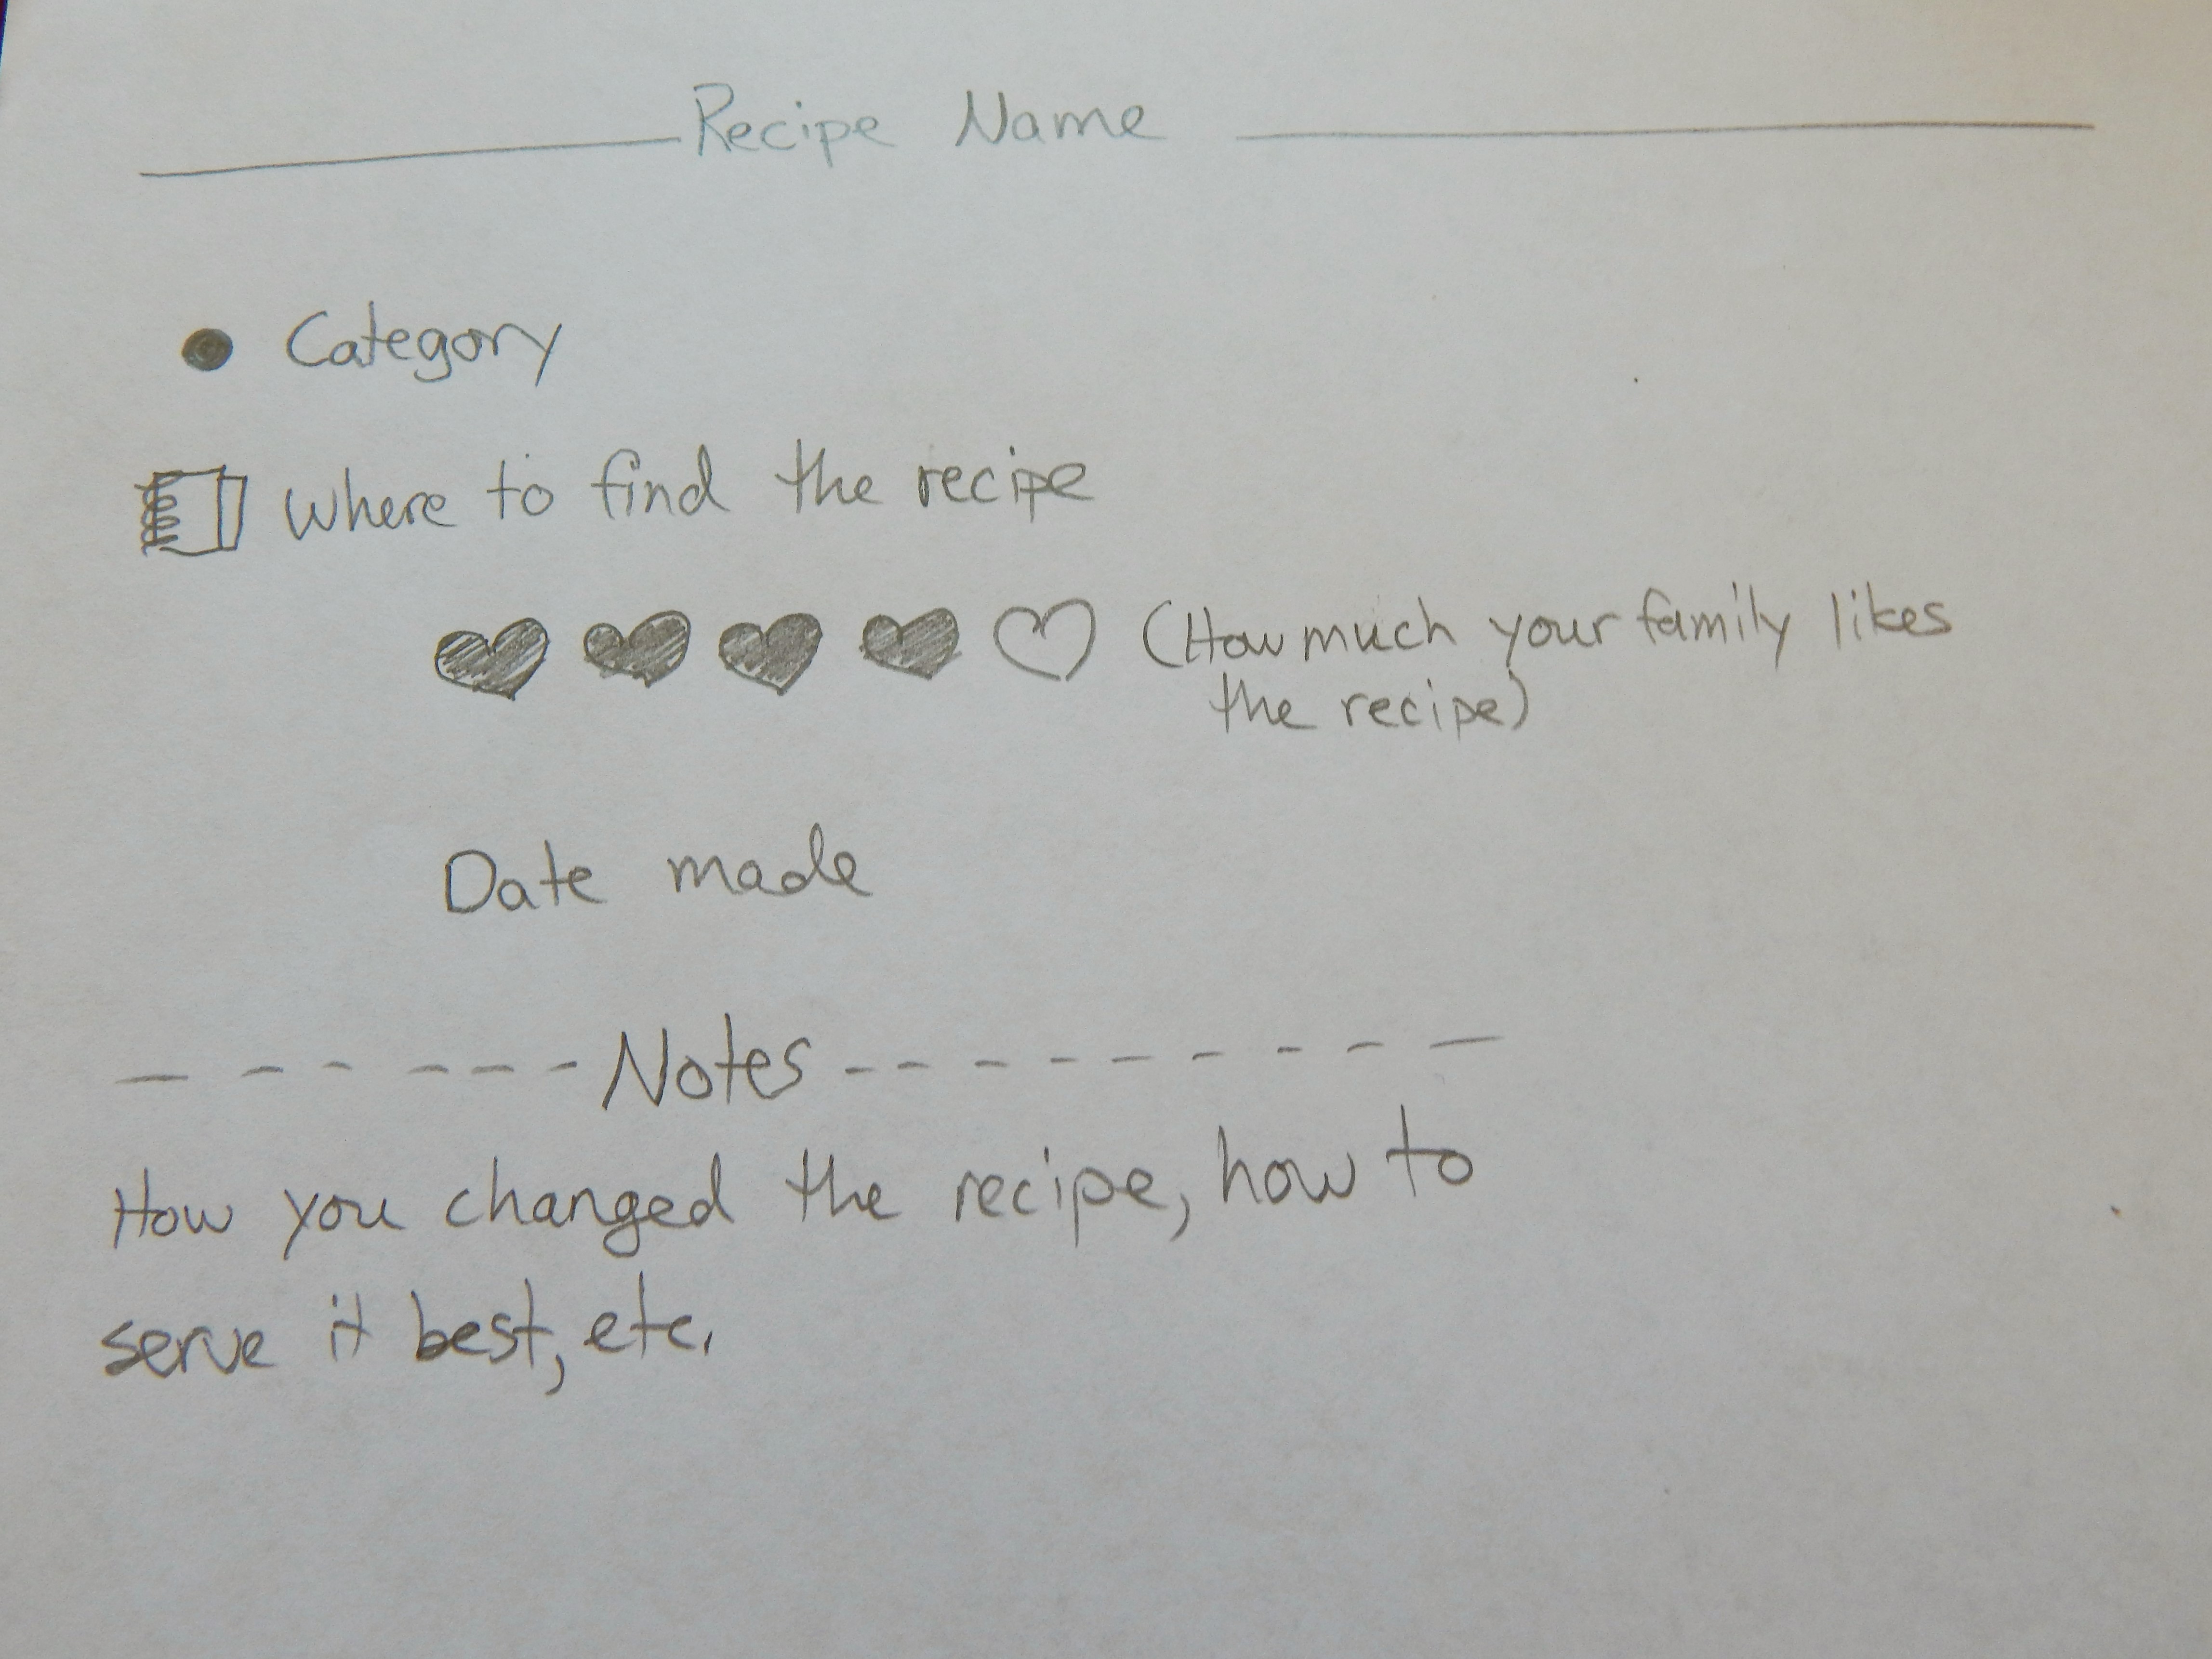 Recipe Name
Category
Where to find the recipe
(How much your family likes
the recipe)
Date made
Notes
How you changed the recipe, how to
serve it best, etc.